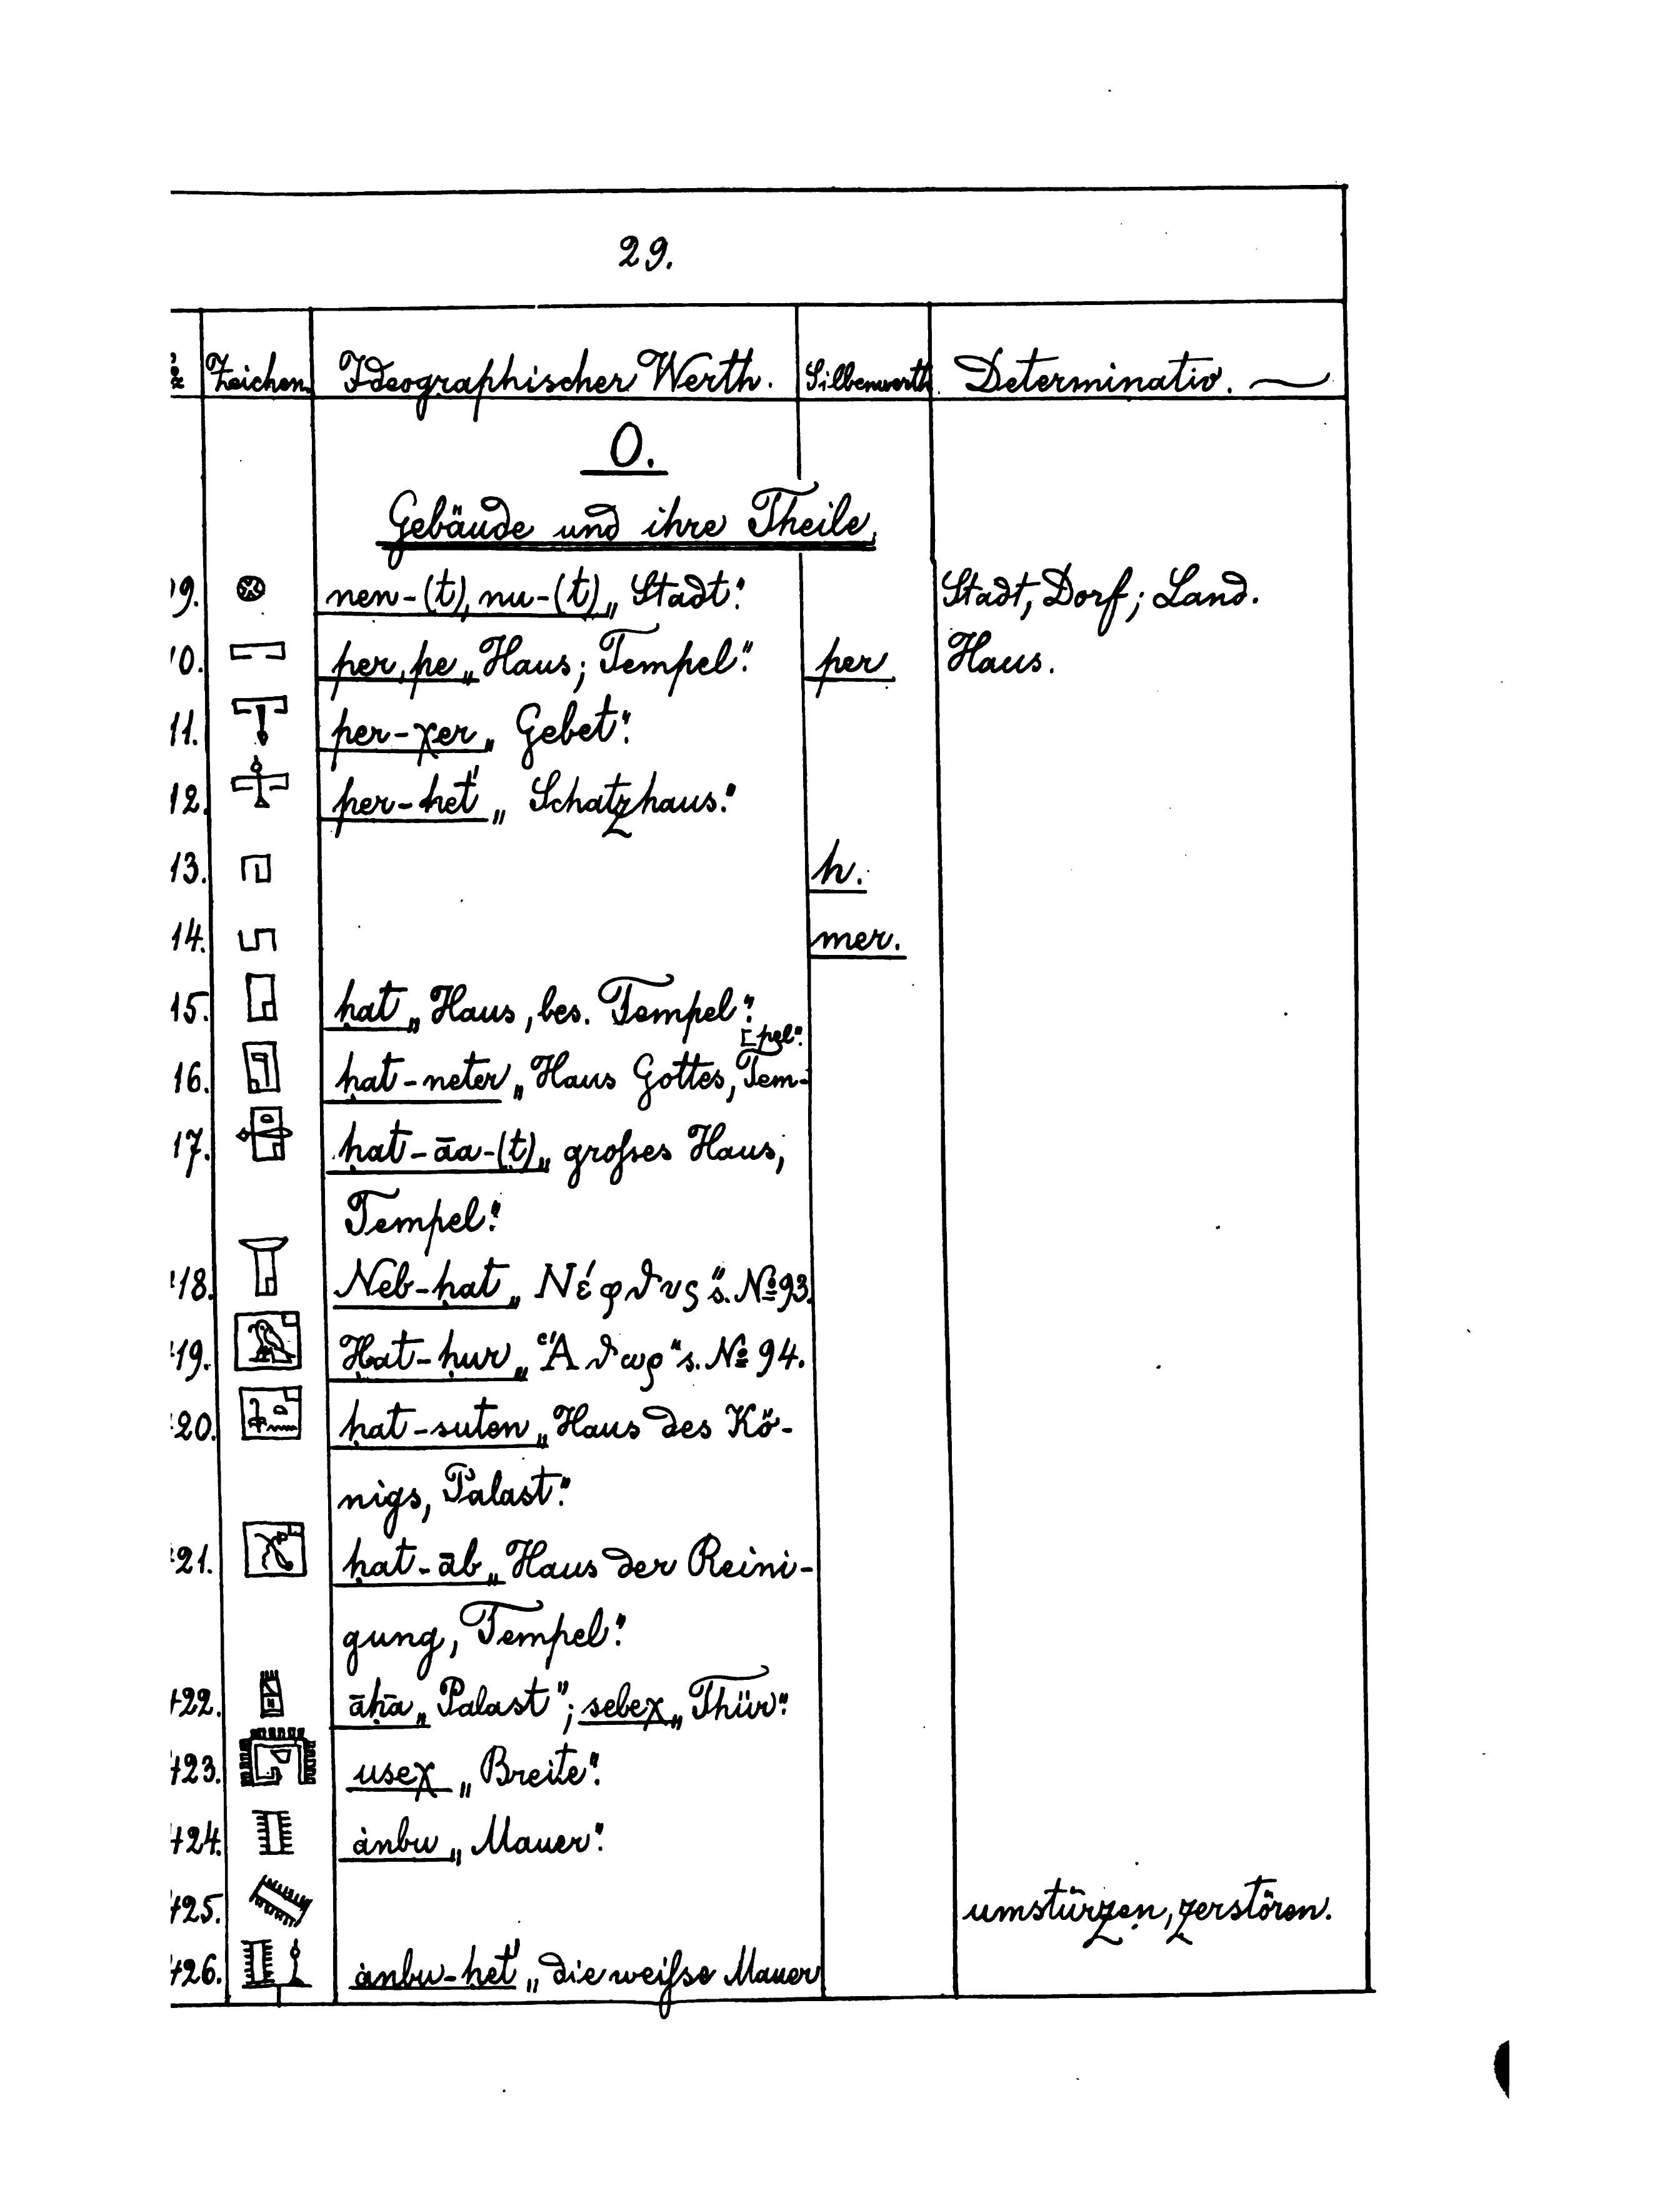 29.
Zeichen. Ideographischer Werth. Silbenwerth Determinativ.
O.
Gebäude und ihre Theile.
9. nen-(t), nu-(t) „Stadt“. Stadt, Dorf; Land.
10. per, pe „Haus; Tempel“. per Haus.
11. per-χer „Gebet“.
12. per-ḥet' „Schatzhaus“.
13. h.
14. mer.
15. ḥat „Haus, bes. Tempel“.
[pel“.
16. ḥat-neter „Haus Gottes, Tem-
17. ḥat-āa-(t) „großes Haus,
Tempel“.
18. Neb-ḥat „Νέφϑυς“ s. No 93.
19. Ḥat-ḥur „Ἅϑωρ“ s. No 94.
20. ḥat-suten „Haus des Kö-
nigs, Palast“.
21. ḥat-āb „Haus der Reini-
gung, Tempel“.
422. āḥā „Palast“; sebeχ „Thür“.
423. useχ „Breite“.
424. ȧnbu „Mauer“.
425. umstürzen, zerstören.
426. ȧnbu-ḥet' „die weiße Mauer